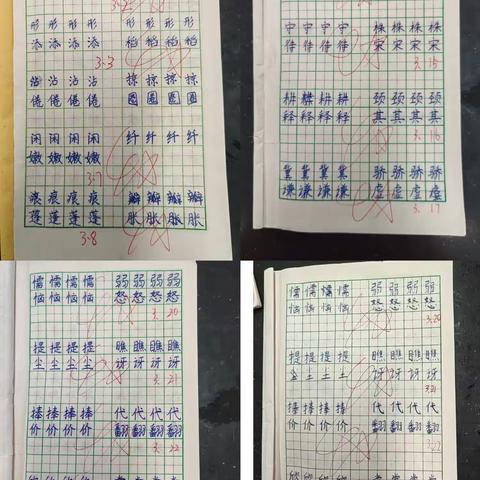 形 形 形 形 形 形 形
添 添 添 添 稻 稻 稻 稻
3.3
沾 沾 沾 沾 掠 掠 掠 掠
倦 倦 倦 倦 圆 圆 圆 圆
闲 闲 闲 闲 纤 纤 纤 纤
嫩 嫩 嫩 嫩
3.7
痕 痕 痕 痕 瓣 瓣 瓣 瓣
蓬 蓬 蓬 蓬 胀 胀 胀 胀
3.8
守 守 守 守 株 株 株 株
待 待 待 待 宋 宋 宋 宋
3.15
耕 耕 耕 耕 颈 颈 颈 颈
释 释 释 释 其 其 其 其
3.16
冀 冀 冀 冀 骄 骄 骄 骄
谦 谦 谦 谦 虚 虚 虚 虚
3.17
懦 懦 懦 懦 弱 弱 弱 弱
恼 恼 恼 恼 怒 怒 怒 怒
3.20
提 提 提 提 瞧 瞧 瞧 瞧
尘 尘 尘 尘 讶 讶 讶 讶
3.21
捧 捧 捧 捧 代 代 代 代
价 价 价 价 翻 翻 翻 翻
3.22
懦 懦 懦 懦 弱 弱 弱 弱
恼 恼 恼 恼 怒 怒 怒 怒
3.20
提 提 提 提 瞧 瞧 瞧 瞧
讶 讶 讶 讶
3.21
捧 捧 捧 捧 代 代 代 代
价 价 价 价 翻 翻 翻 翻
3.22